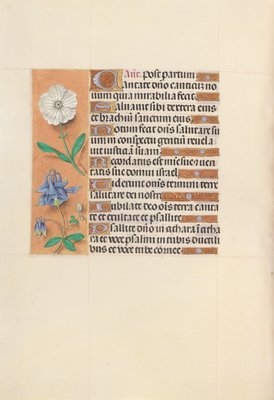 Ant. post partum
Cantate dño canticũ no
uum quia mirabilia fecit
Saluauit sibi dextera eius
et brachiũ sanctum eius
Notum fecit dñs salutare su
um in conspectu gentiũ reuela
uit iusticiã suam
Recordatus est mie sue et ueri
tatis sue domui israel
Uiderunt oms termini terre
salutare dei nostri
Iubilate deo ois terra canta
te et exultate et psallite
Psallite dño in cithara ĩ citha
ra et uoce psalmi in tubis ductili
bus et uoce tube cornee